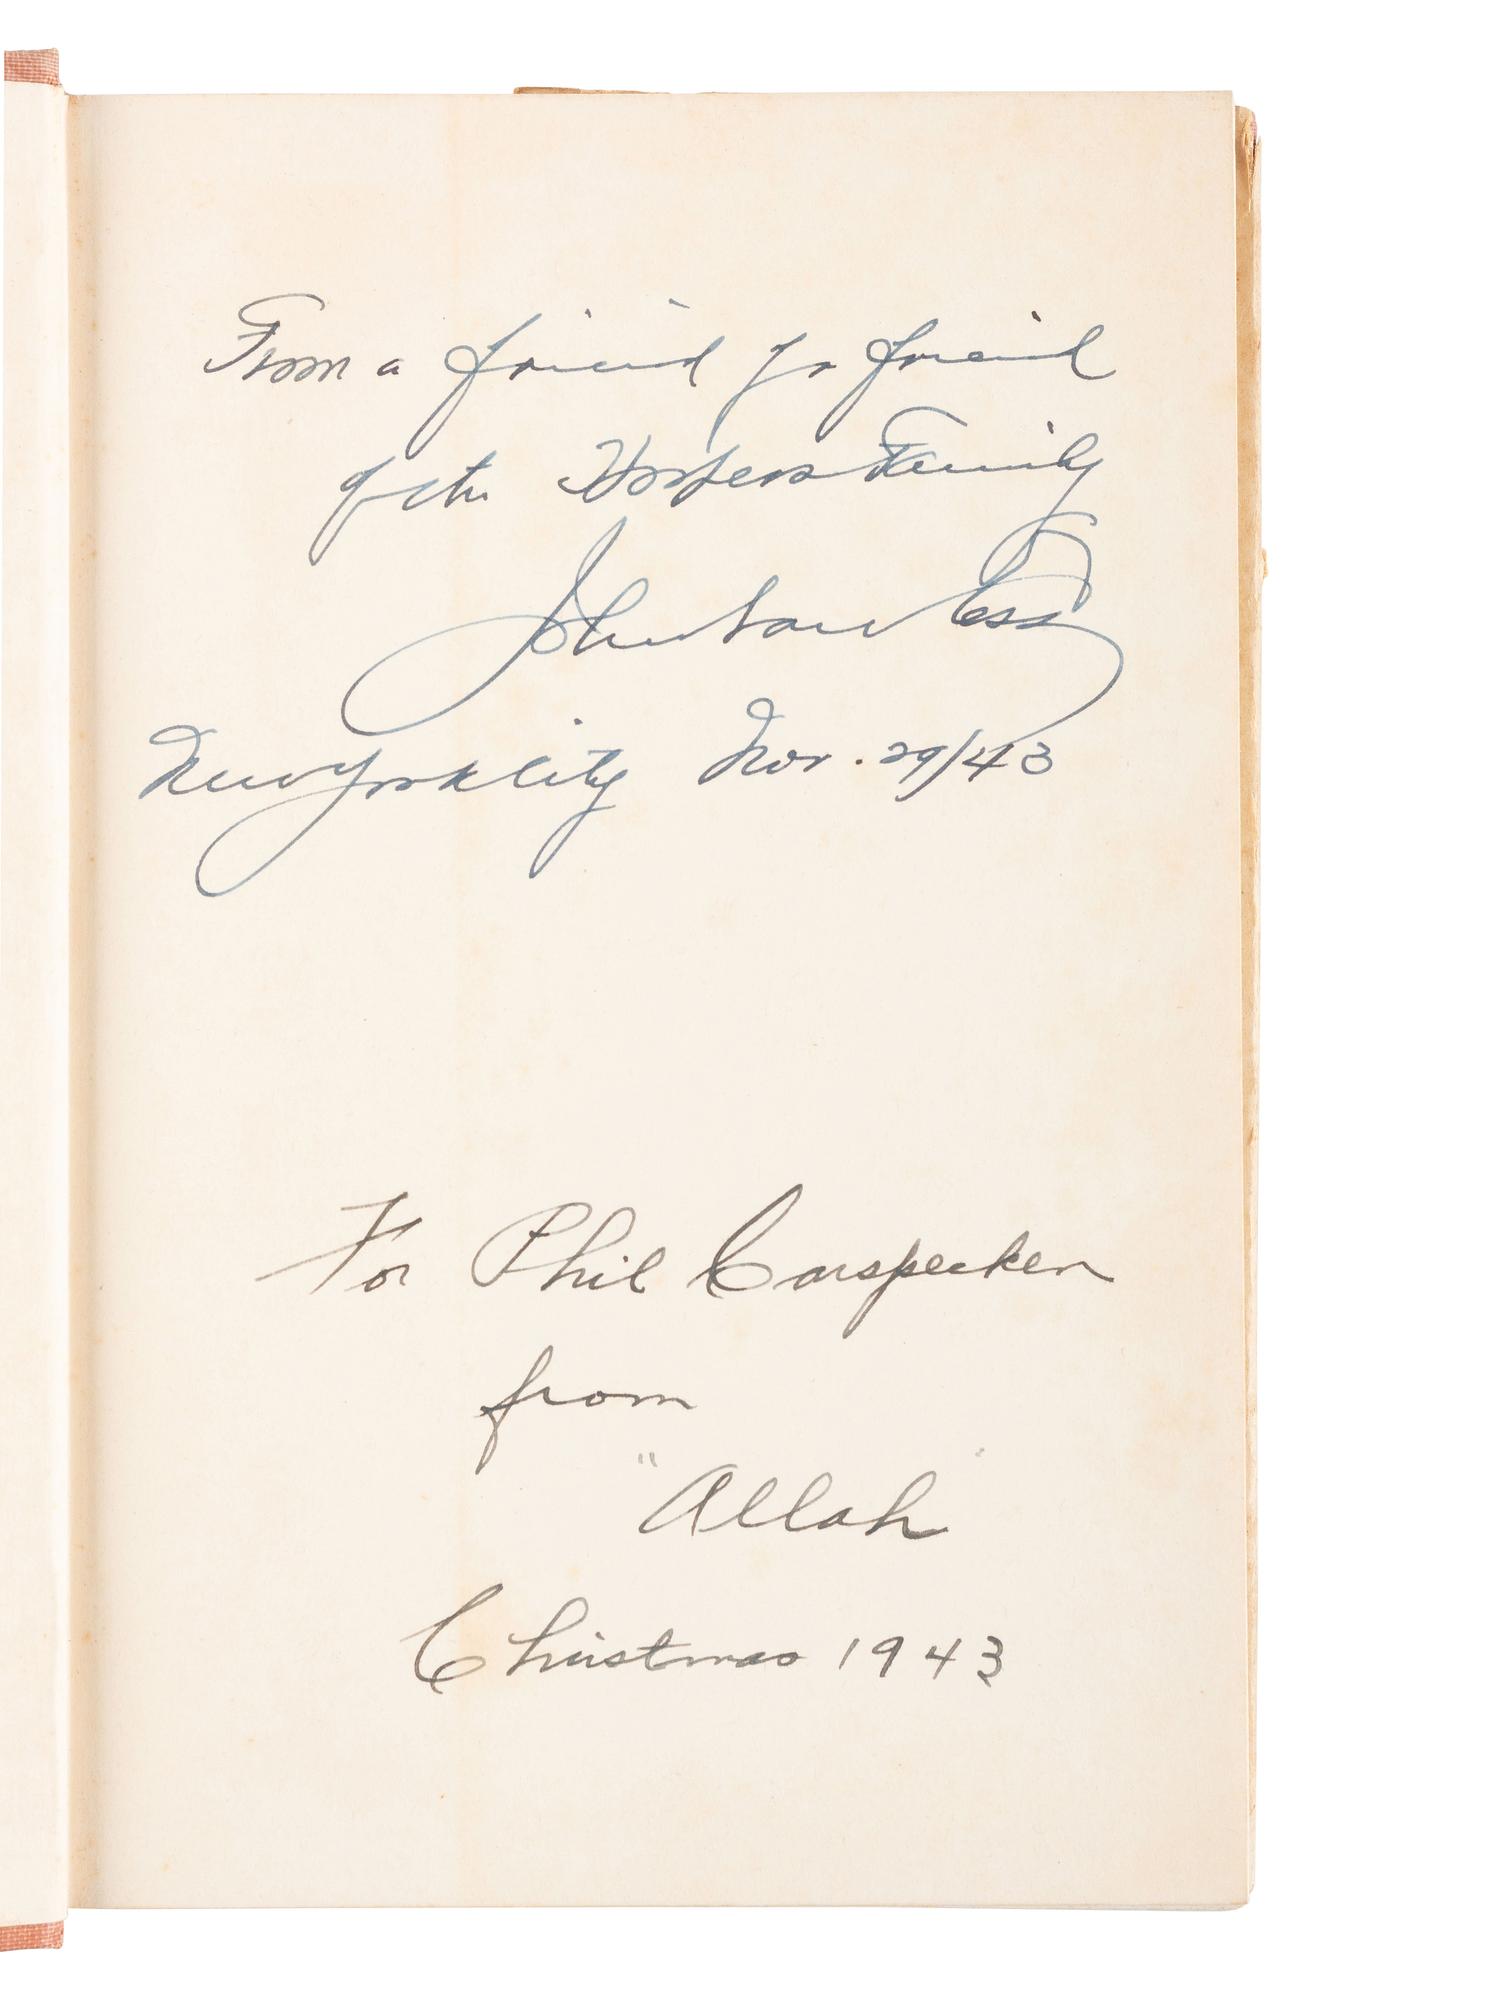 From a friend to friend
of the Hoofers Family
John
New York City Nov. 29/43
For Phil Carspecken
from
"Allah"
Christmas 1943